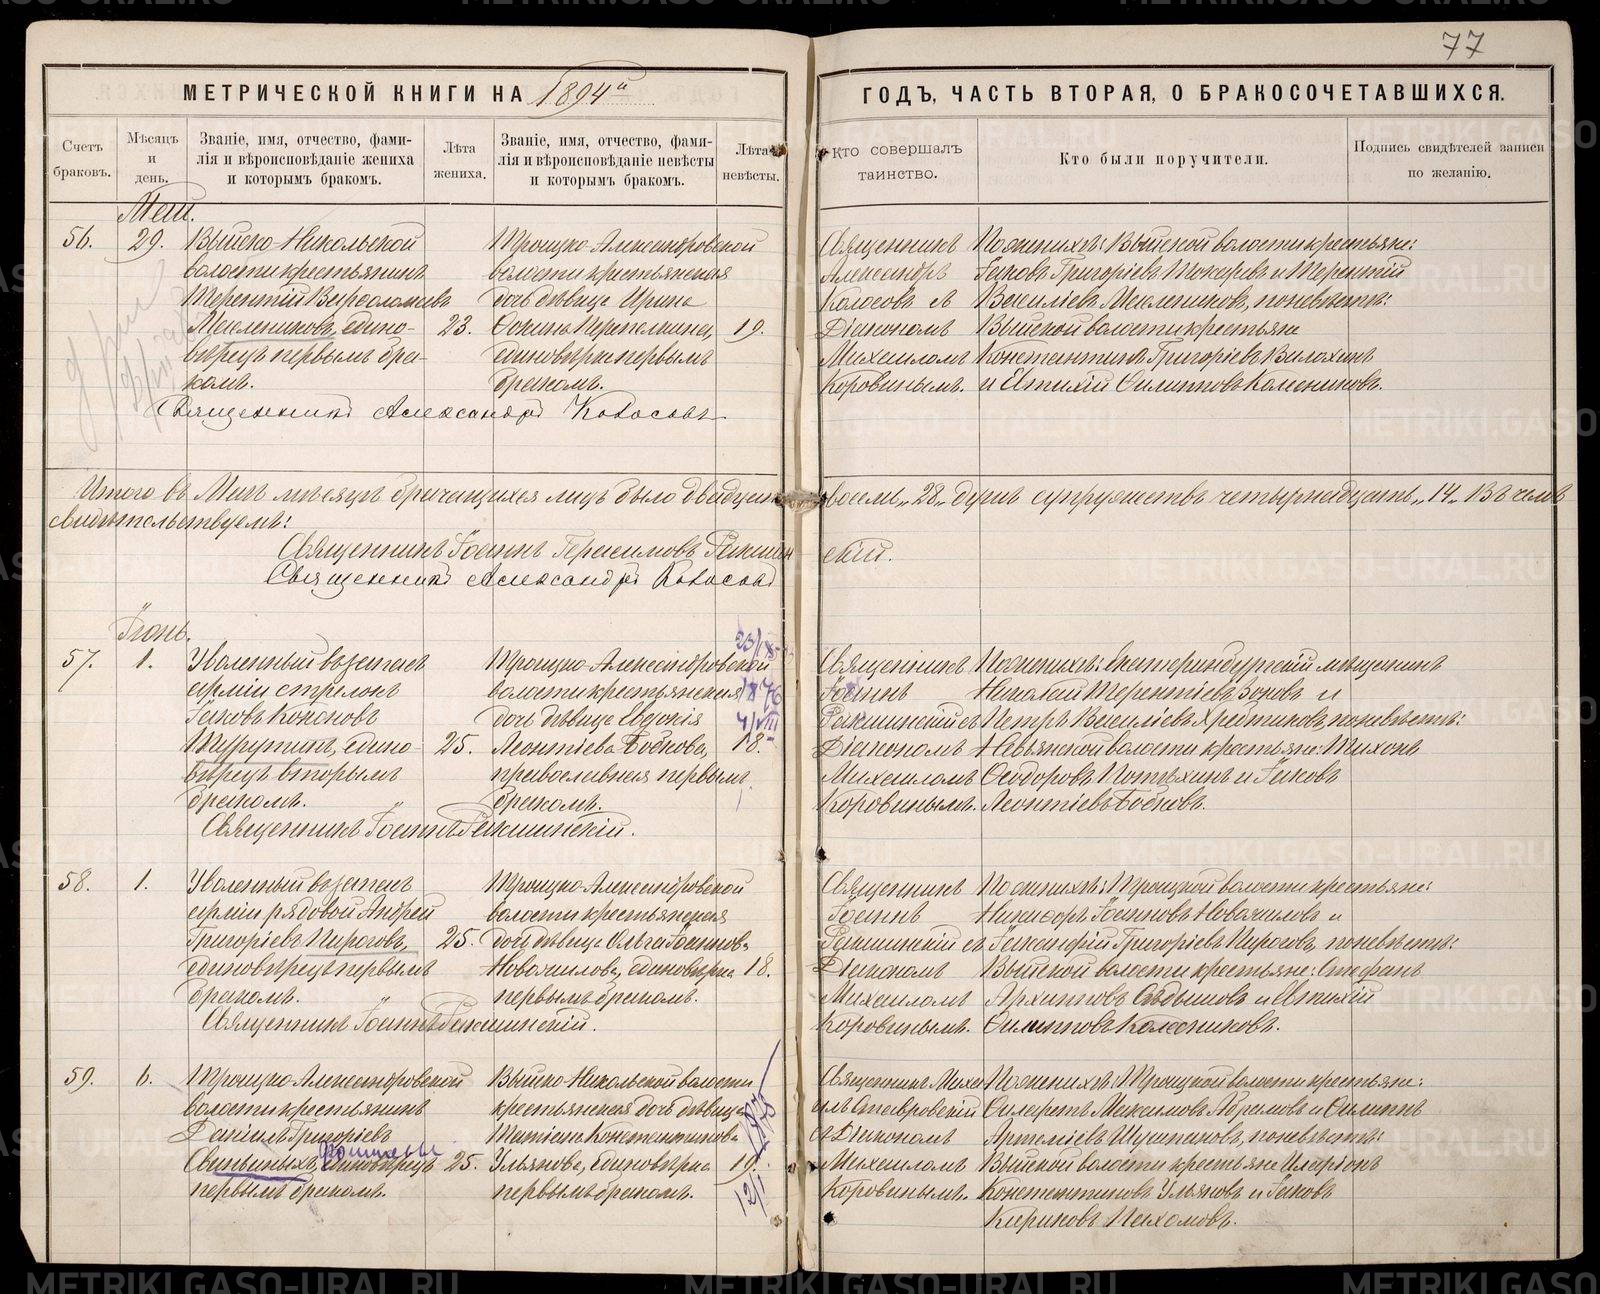 77
МЕТРИЧЕСКОЙ КНИГИ НА 1894й
ГОДЪ, ЧАСТЬ ВТОРАЯ, О БРАКОСОЧЕТАВШИХСЯ.
Счетъ браковъ.
Мѣсяцъ и день.
Званіе, имя, отчество, фами-
лія и вѣроисповѣданіе жениха
и которымъ бракомъ.
Лѣта жениха.
Званіе, имя, отчество, фами-
лія и вѣроисповѣданіе невѣсты
и которымъ бракомъ.
Лѣта невѣсты.
Кто совершалъ
таинство.
Кто были поручители.
Подпись свидѣтелей записи
по желанію.
Май.
56. 29.
Выйско-Никольской
волости крестьянинъ
Терентій Варѳоломеевъ
Масленниковъ, едино-
вѣрецъ первымъ бра-
комъ.
23.
Троицко-Александровской
волости крестьянская
дочь дѣвица Ирина
единовѣрка первымъ
бракомъ.
19.
Священникъ
Александръ
Колосовъ съ
Діакономъ
Михаиломъ
Коровинымъ.
По женихѣ: Выйской волости крестьяне:
Яковъ Григоріевъ Токаревъ и Терентій
Василіевъ Масленниковъ, по невѣстѣ:
Выйской волости крестьяне
Константинъ Григоріевъ
и Евтихій Филипповъ Колесниковъ.
Священникъ Александръ Колосовъ
Итого въ Маѣ мѣсяцѣ брачащихся лицъ было двадцать восемь „28„ душъ супружествъ четырнадцать „14„ въ чемъ
свидѣтельствуемъ:
Священникъ Іоаннъ Герасимовъ Рякшинскій.
Священникъ Александръ Колосовъ
Іюнь.
57. 1.
Уволенный въ запасъ
арміи стрѣлокъ
Яковъ Кононовъ
едино-
вѣрецъ вторымъ
бракомъ.
25.
Троицко-Александровской
волости крестьянская
дочь дѣвица Евдокія
Леонтіева Бобкова,
православная первымъ
бракомъ.
18.
1876
4/VIII
Священникъ
Іоаннъ
Рякшинскій съ
Діакономъ
Михаиломъ
Коровинымъ.
По женихѣ: Екатеринбургскій мѣщанинъ
Николай Терентіевъ Зоковъ и
Петръ Василіевъ по невѣстѣ:
Невьянской волости крестьяне: Тихонъ
Ѳеодоровъ Потѣхинъ и Яковъ
Леонтіевъ Бобковъ.
Священникъ Іоаннъ Рякшинскій.
58. 1.
Уволенный въ запасъ
арміи рядовой Андрей
Григоріевъ Пироговъ,
единовѣрецъ первымъ
бракомъ.
25.
Троицко-Александровской
волости крестьянская
дочь дѣвица Ольга Іоаннова
Новожилова, единовѣрка
первымъ бракомъ.
18.
Священникъ
Іоаннъ
Рякшинскій съ
Діакономъ
Михаиломъ
Коровинымъ.
По женихѣ: Троицкой волости крестьяне:
Никифоръ Іоанновъ Новожиловъ и
Григоріевъ Пироговъ, по невѣстѣ:
Выйской волости крестьяне: Стефанъ
Архиповъ и Евтихій
Филипповъ Колесниковъ.
Священникъ Іоаннъ Рякшинскій.
59. 6.
Троицко-Александровской
волости крестьянинъ
Даніилъ Григоріевъ
Свиньиныхъ, единовѣрецъ
первымъ бракомъ.
25.
Выйско-Никольской волости
крестьянская дочь дѣвица
Татіана Константинова
Ульянова, единовѣрка
первымъ бракомъ.
19.
1875
12/I
Священникъ Миха-
илъ Ставровскій
съ Діакономъ
Михаиломъ
Коровинымъ.
По женихѣ: Троицкой волости крестьяне:
Филаретъ Максимовъ Абрамовъ и Филиппъ
Артеміевъ Шушпановъ, по невѣстѣ:
Выйской волости крестьяне Иларіонъ
Константиновъ Ульяновъ и Яковъ
Кириковъ Пахомовъ.
METRIKI.GASO-URAL.RU